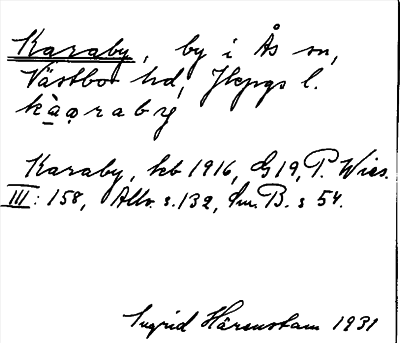 Karaby, by i Ås sn,
Västbo hd, Jkpgs l.
kàạrabẏ
Karaby, kb 1916, G 19, P. Wies.
III: 158, Allv. s. 132, Sm. B. s 54.
Ingrid Härenstam 1931